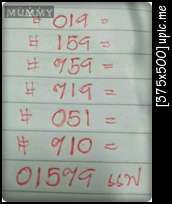 MUMMY
# 019 =
# 159 =
# 959 =
# 719 =
# 051 =
# 910 =
01579 แฟ
[375x500] upic.me